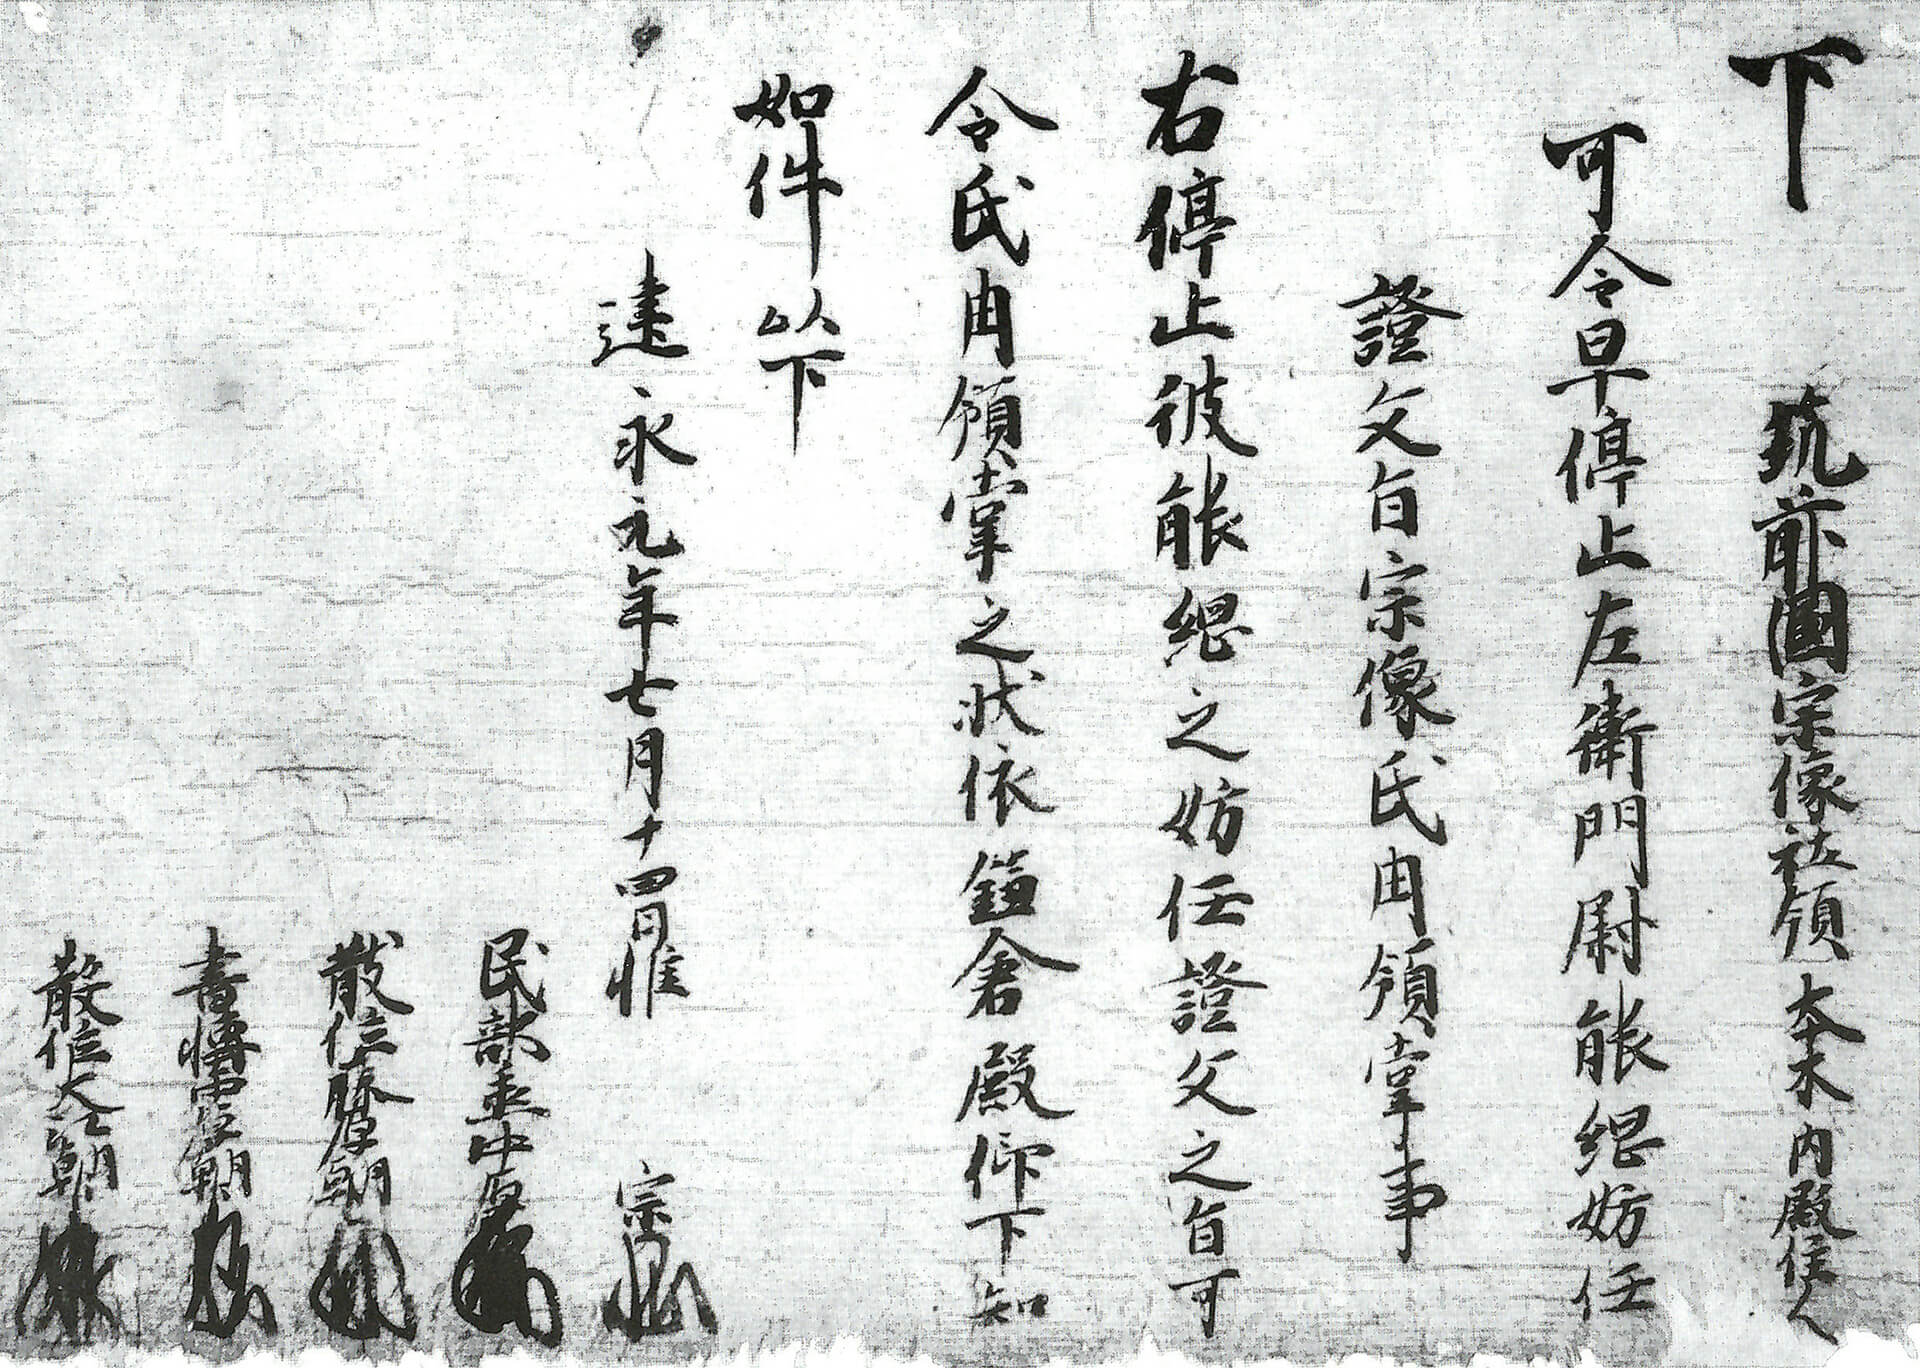 下　筑前國宗像社領本木内殿住人
可令早停止左衛門尉能妨任
證文旨宗像氏用領掌事
右停止彼能之妨任證文之旨可
令氏用領掌之状依鎌倉殿仰下知
如件以下
建永元年七月十四日惟宗
民部丞中原
散位藤原朝臣
書博士中原朝臣
散位大江朝臣